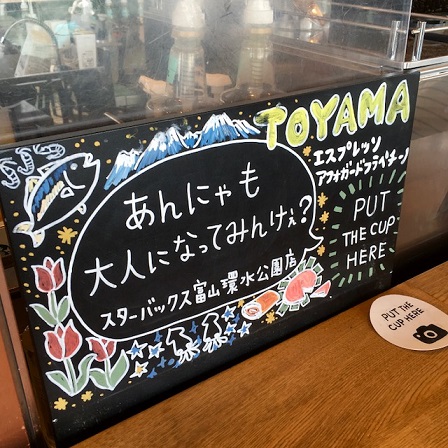 TOYAMA
エスプレッソ
アフォガードフラペチーノ
あんにゃも
大人になってみんけぇ?
スターバックス富山環水公園店
PUT
THE CUP
HERE
PUT THE
CUP HERE